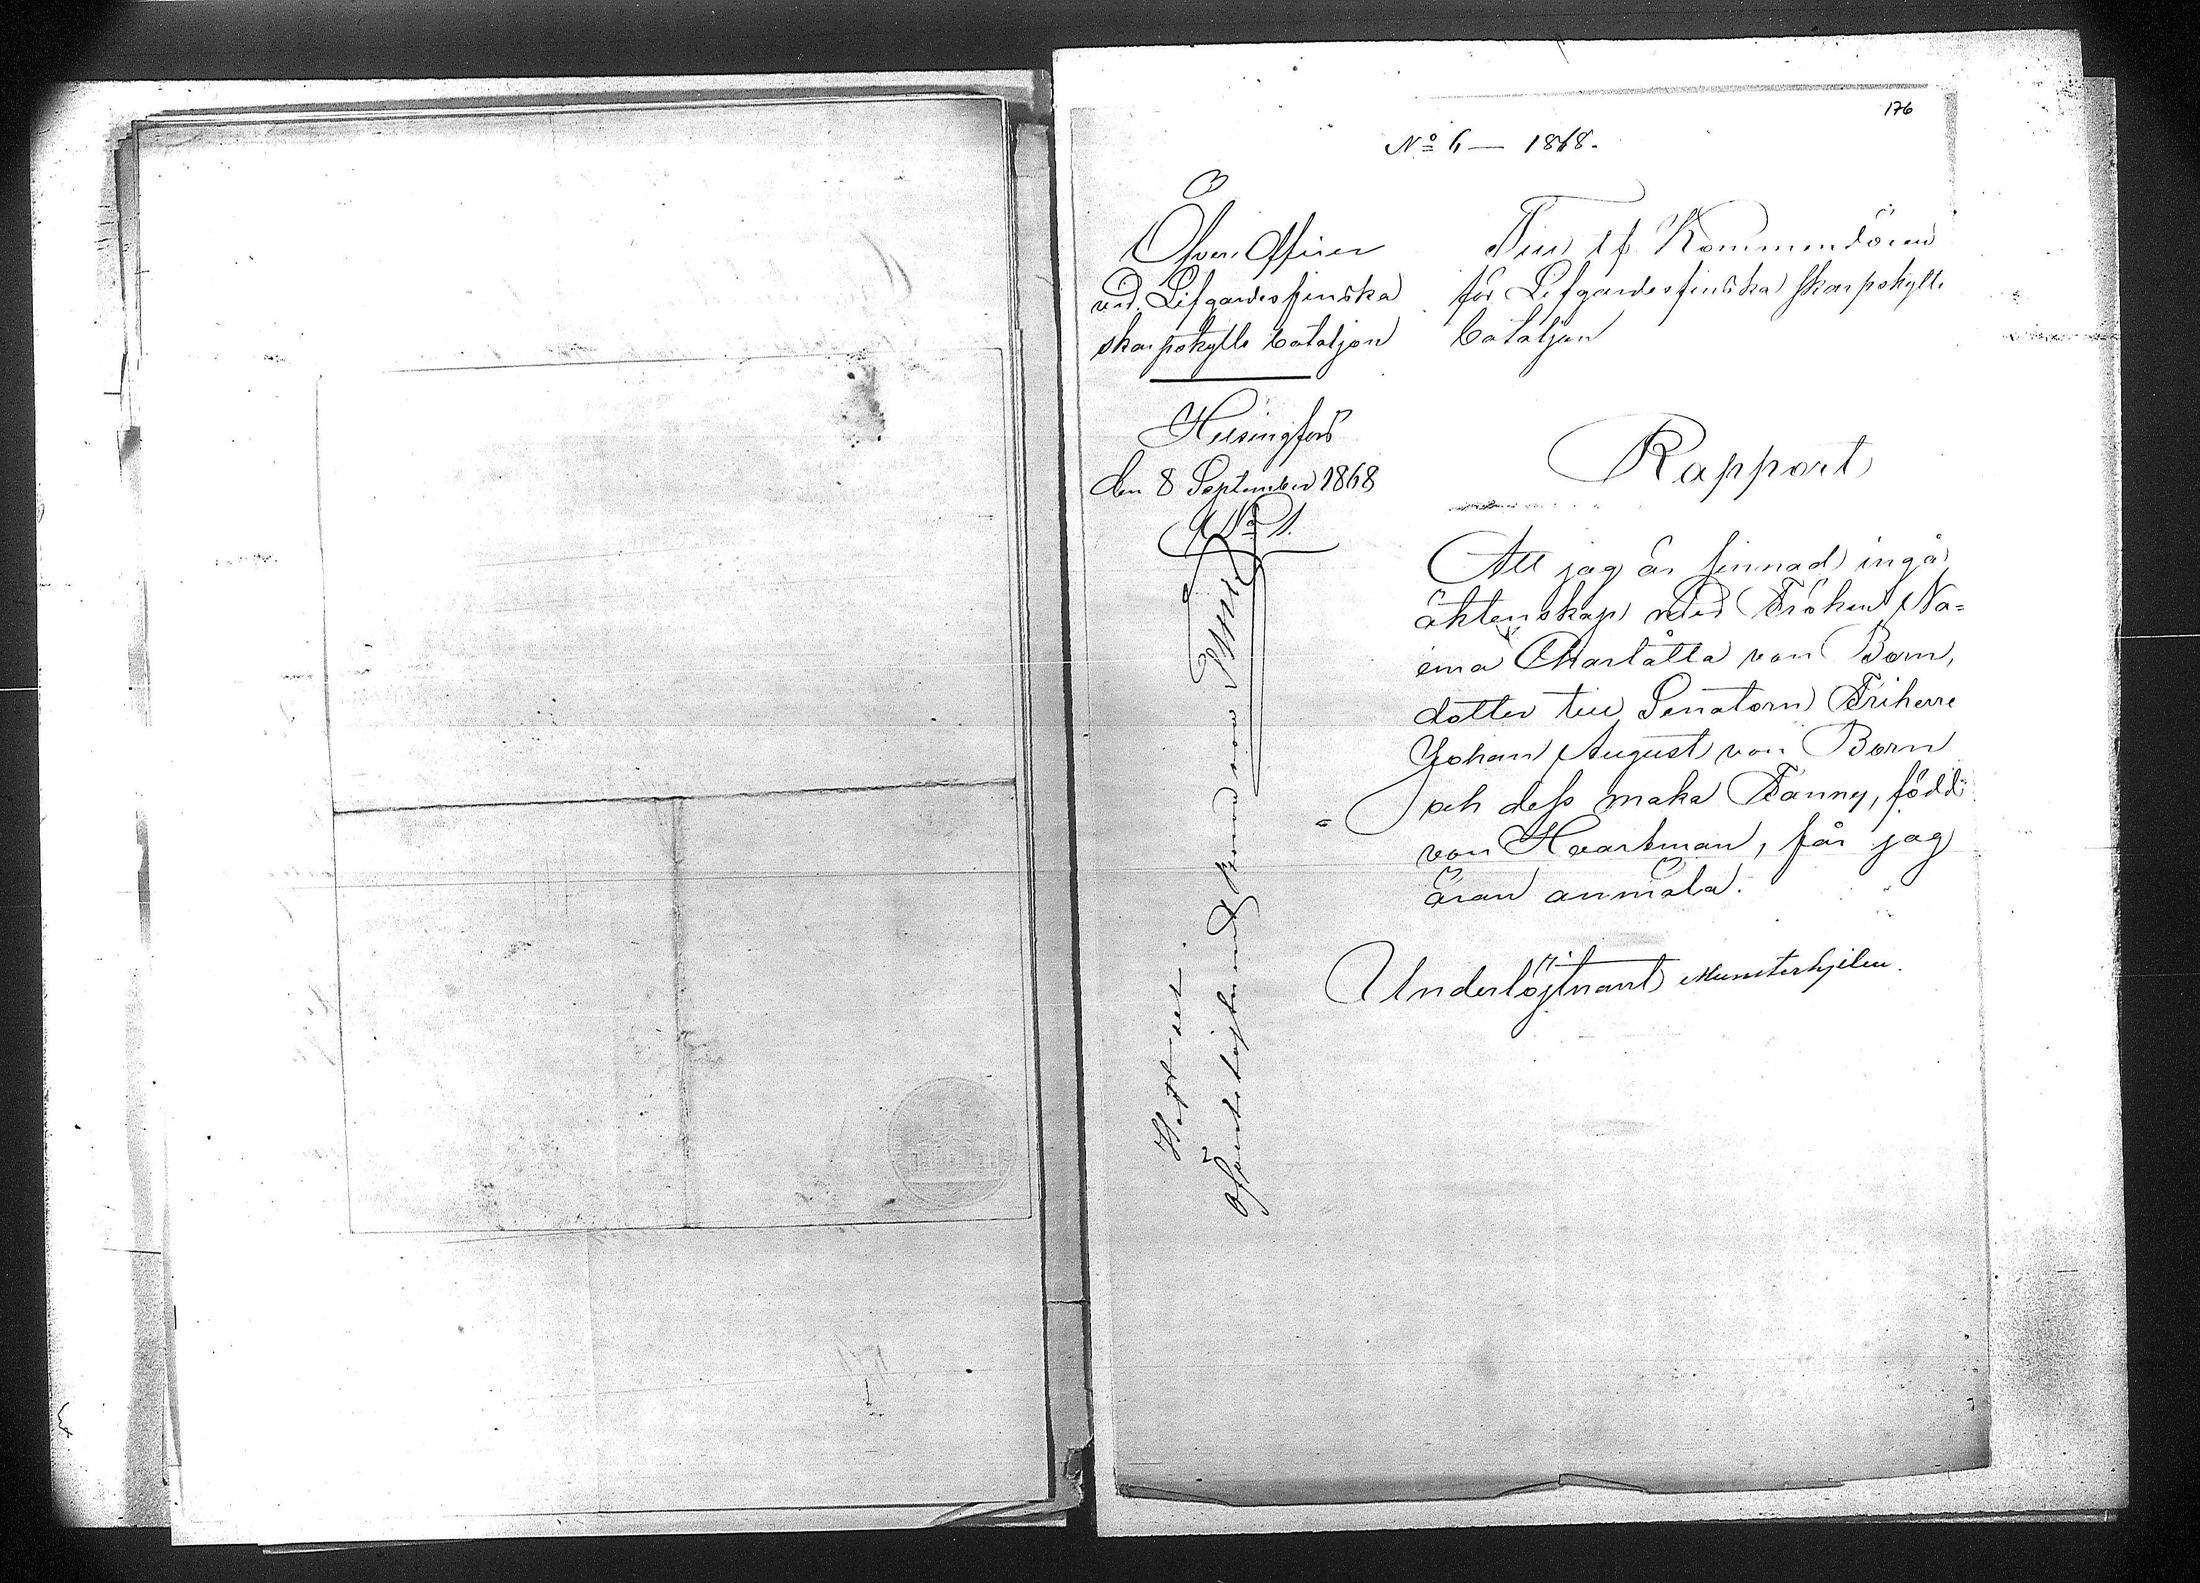 176
No 6 — 1868.
Öfver Officer
vid Lifgardes finska
skarpskytte bataljon
Helsingfors
den 8 September 1868
No 1.
Till tf. Kommendören
för Lifgardes finska skarpskytte
bataljon
Rapport
Att jag är sinnad ingå
äktenskap med Fröken Na=
ema Charlåtta von Born,
dotter till Senatorn Friherre
Johan August von Born
och dess maka Fanny, född
von Haartman, får jag
äran anmäla.
Underlöjtnant Munsterhjelm.
Öfverstelöjtnant